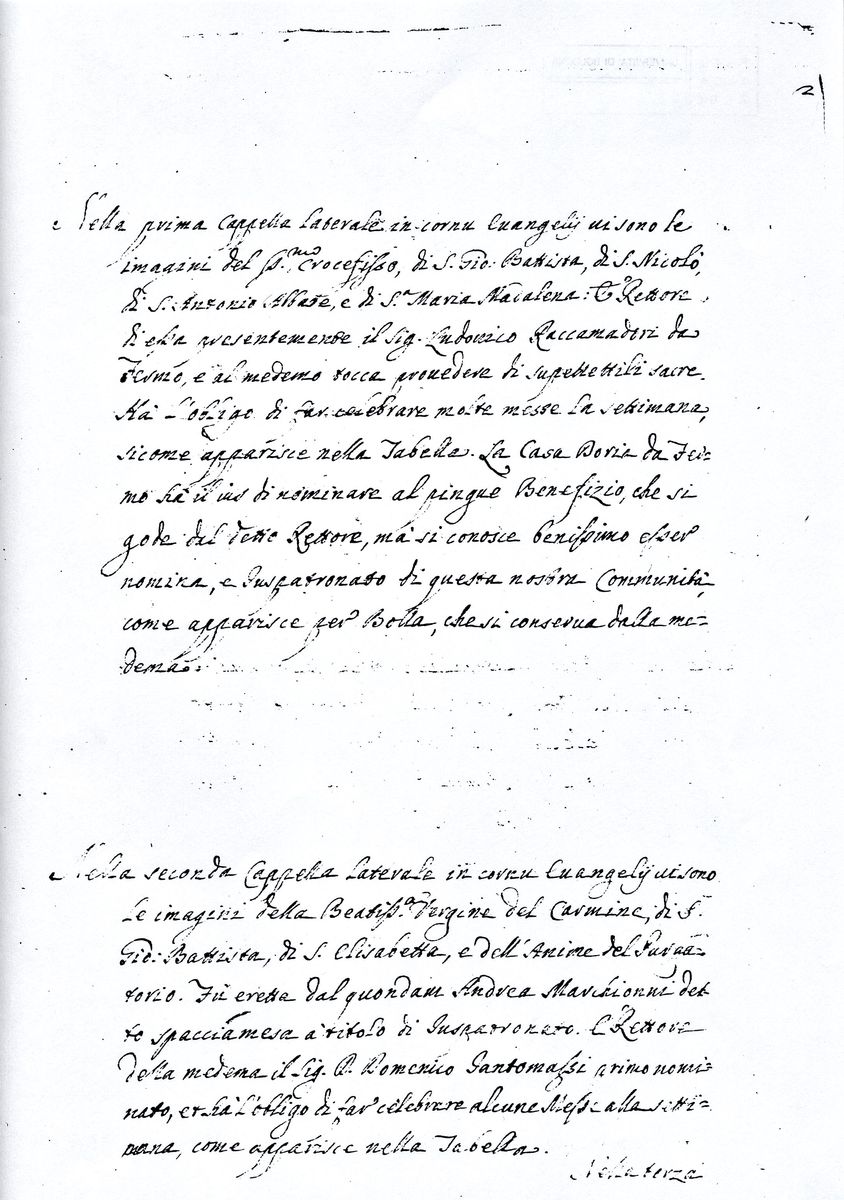 2
Nella prima Cappella laterale in cornu Euangelij ui sono le
imagini del SS.mo Crocefisso, di S. Gio: Battista, di S. Nicolò,
di S. Antonio Abbate, e di S.a Maria Madalena: È Rettore
di essa presentemente il Sig. Ludovico Raccamadori da
Fermo, e al medemo tocca prouedere di supellettili sacre.
Hà l'obligo di far celebrare molte messe la settimana,
sicome apparisce nella Tabella. La Casa Doria da Fer=
mo hà il ius di nominare al pingue Benefizio, che si
gode dal detto Rettore, mà si conosce benissimo esser
nomina, e Iuspatronato di questa nostra Communità,
come apparisce per Bolla, che si conserua dalla me=
dema.
Nella seconda Cappella laterale in cornu Euangelij ui sono
le imagini della Beatiss.a Vergine del Carmine, di S.
Gio: Battista, di S. Elisabetta, e dell'Anime del Purga=
torio. Fù eretta dal quondam Andrea Marchionni det=
to spacciamesa à titolo di Iuspatronato. È Rettore
della medema il Sig. D. Domenico Santomassi primo nomi=
nato, et hà l'obligo di far celebrare alcune Messe alla setti=
mana, come apparisce nella Tabella.
Nella terza